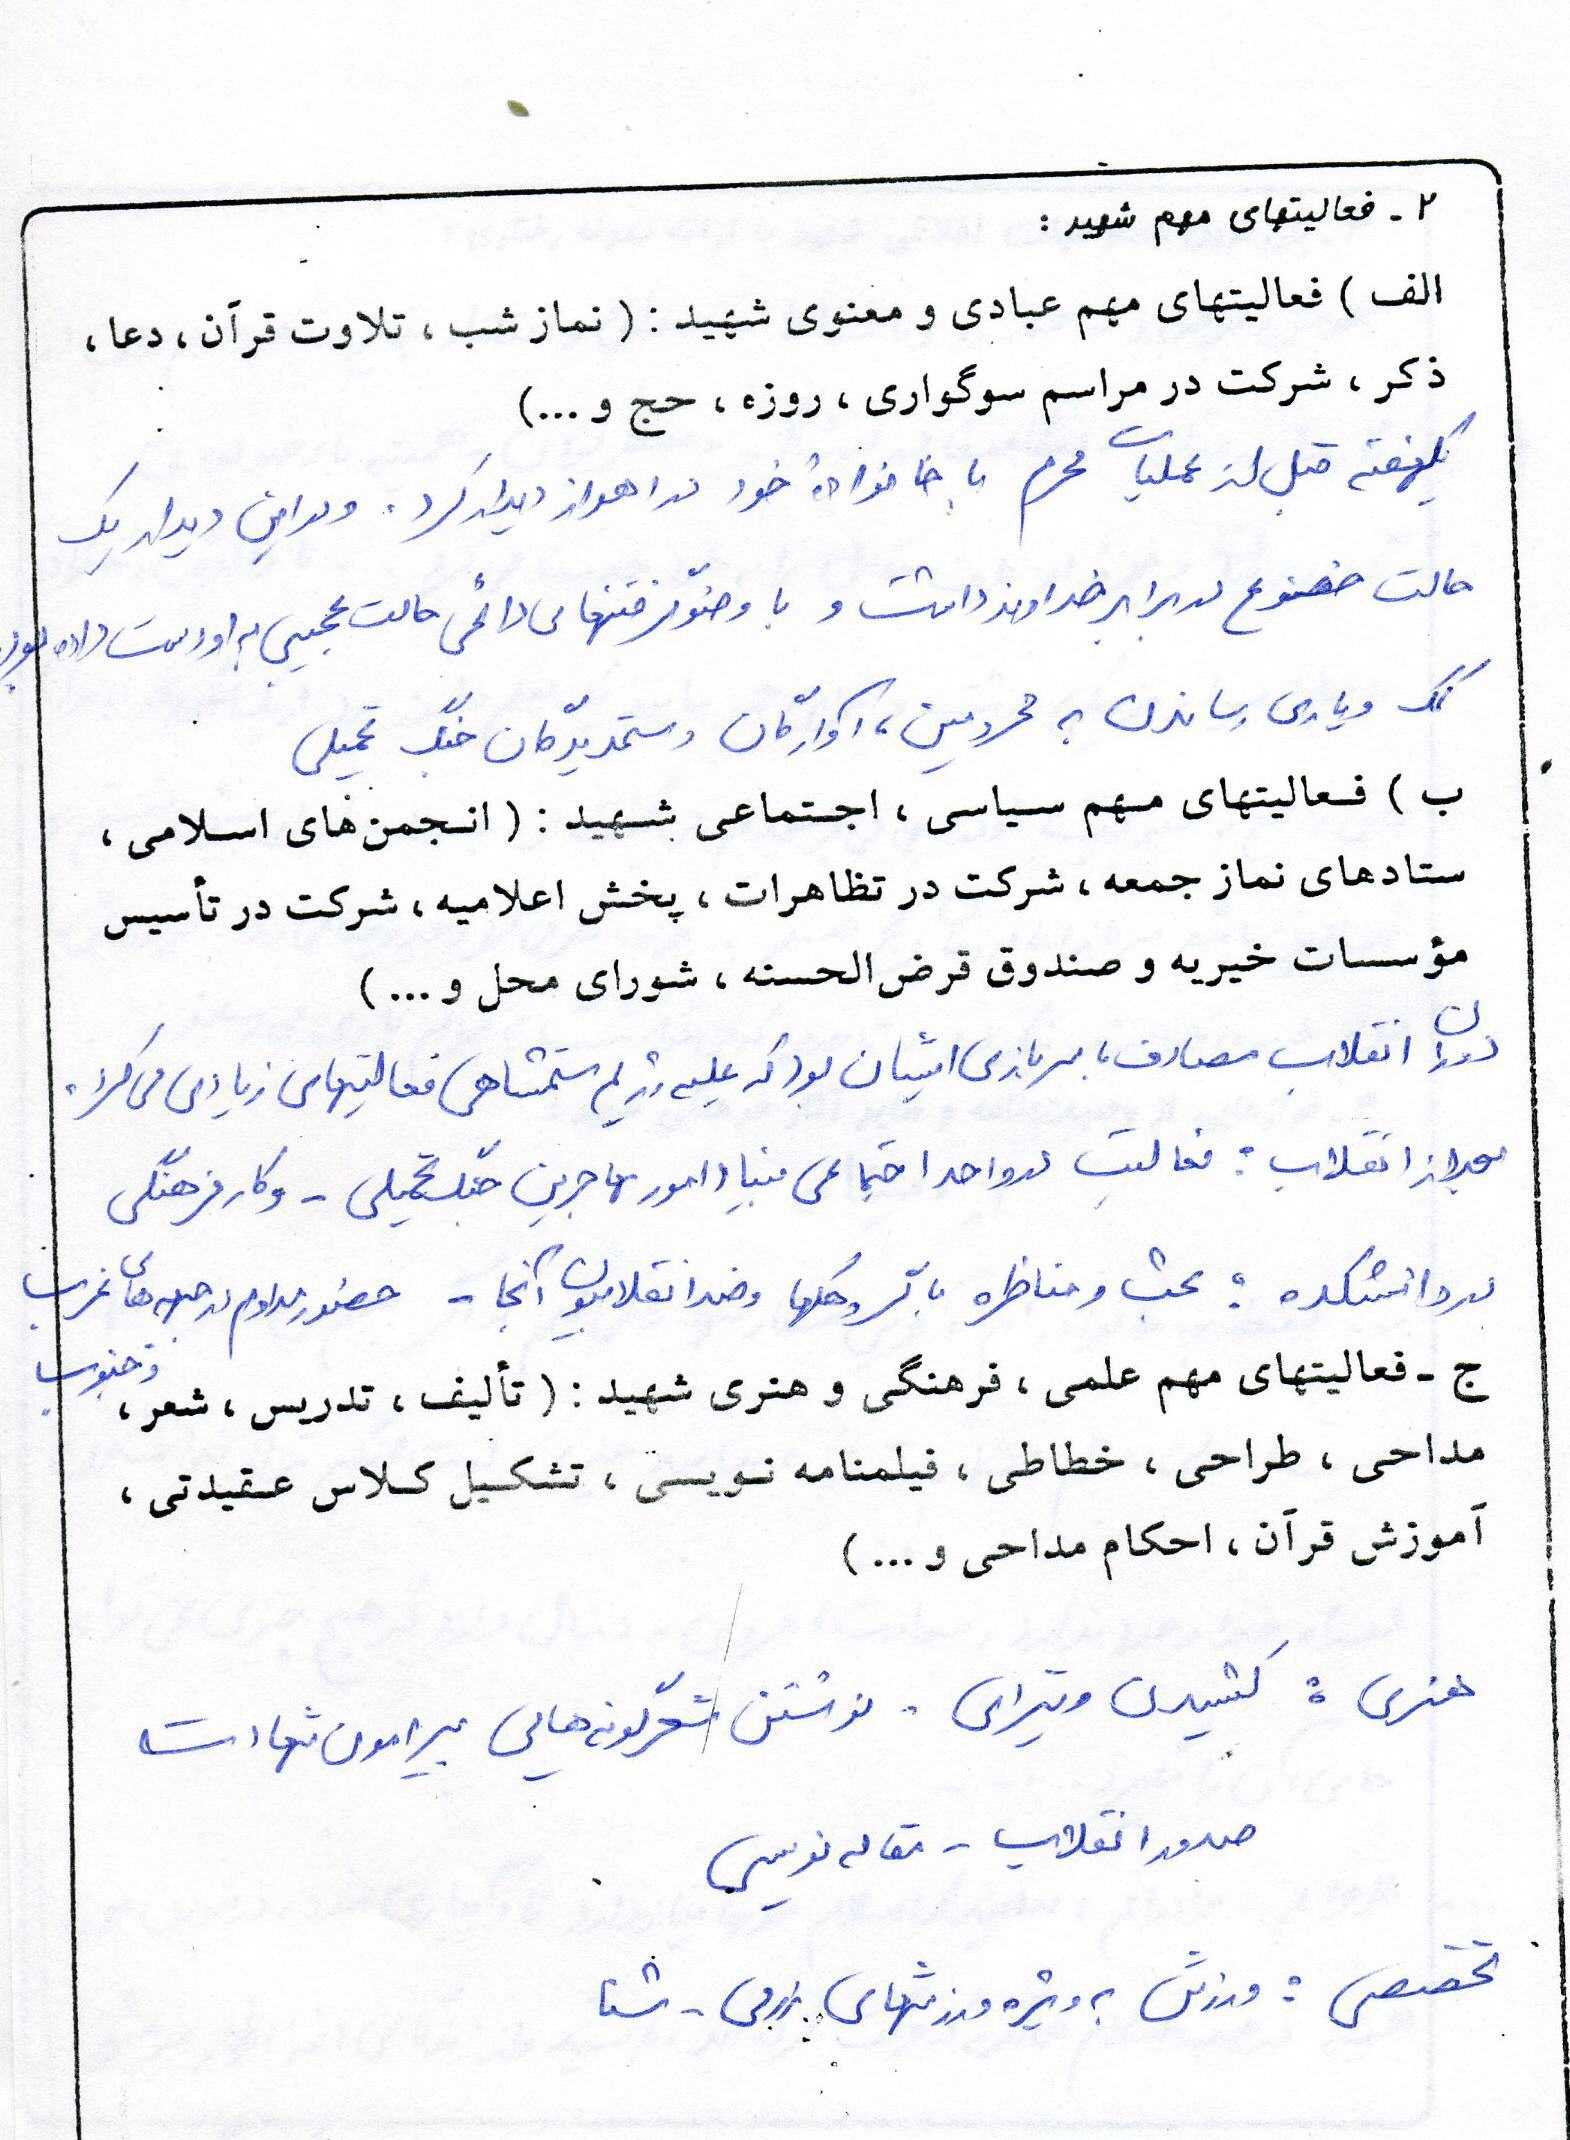 ۲ - فعالیتهای مهم شهید :
الف ) فعالیتهای مهم عبادی و معنوی شهید : ( نماز شب ، تلاوت قرآن ، دعا ،
ذکر ، شرکت در مراسم سوگواری ، روزه ، حج و ...)
یکهفته قبل از عملیات محرم با خانواده خود در اهواز دیدار کرد . و در این دیدار یک
حالت خضوع در برابر خداوند داشت و با وضو گرفتنهای دائمی حالت عجیبی به او دست داده بود.
کمک و یاری رساندن به محرومین ، آوارگان و ستمدیدگان جنگ تحمیلی
ب ) فعالیتهای مهم سیاسی ، اجتماعی شهید : ( انجمن‌های اسلامی ،
ستادهای نماز جمعه ، شرکت در تظاهرات ، پخش اعلامیه ، شرکت در تأسیس
مؤسسات خیریه و صندوق قرض‌الحسنه ، شورای محل و ... )
دوران انقلاب مصادف با سربازی ایشان بود که علیه رژیم ستمشاهی فعالیتهای زیادی می‌کرد .
بعد از انقلاب : فعالیت در واحد اجتماعی بنیاد امور مهاجرین جنگ تحمیلی - و کار فرهنگی
در دانشکده : بحث و مناظره با گروهکها و ضد انقلابیون آنجا - حضور مداوم در جبهه‌های غرب
و جنوب
ج - فعالیتهای مهم علمی ، فرهنگی و هنری شهید : ( تألیف ، تدریس ، شعر ،
مداحی ، طراحی ، خطاطی ، فیلمنامه نویسی ، تشکیل کلاس عقیدتی ،
آموزش قرآن ، احکام مداحی و ... )
هنری : کشیدن و تیرای . نوشتن شعرگونه‌هایی پیرامون شهادت
صدور انقلاب - مقاله نویسی
تخصصی : ورزش به ویژه ورزشهای رزمی - شنا